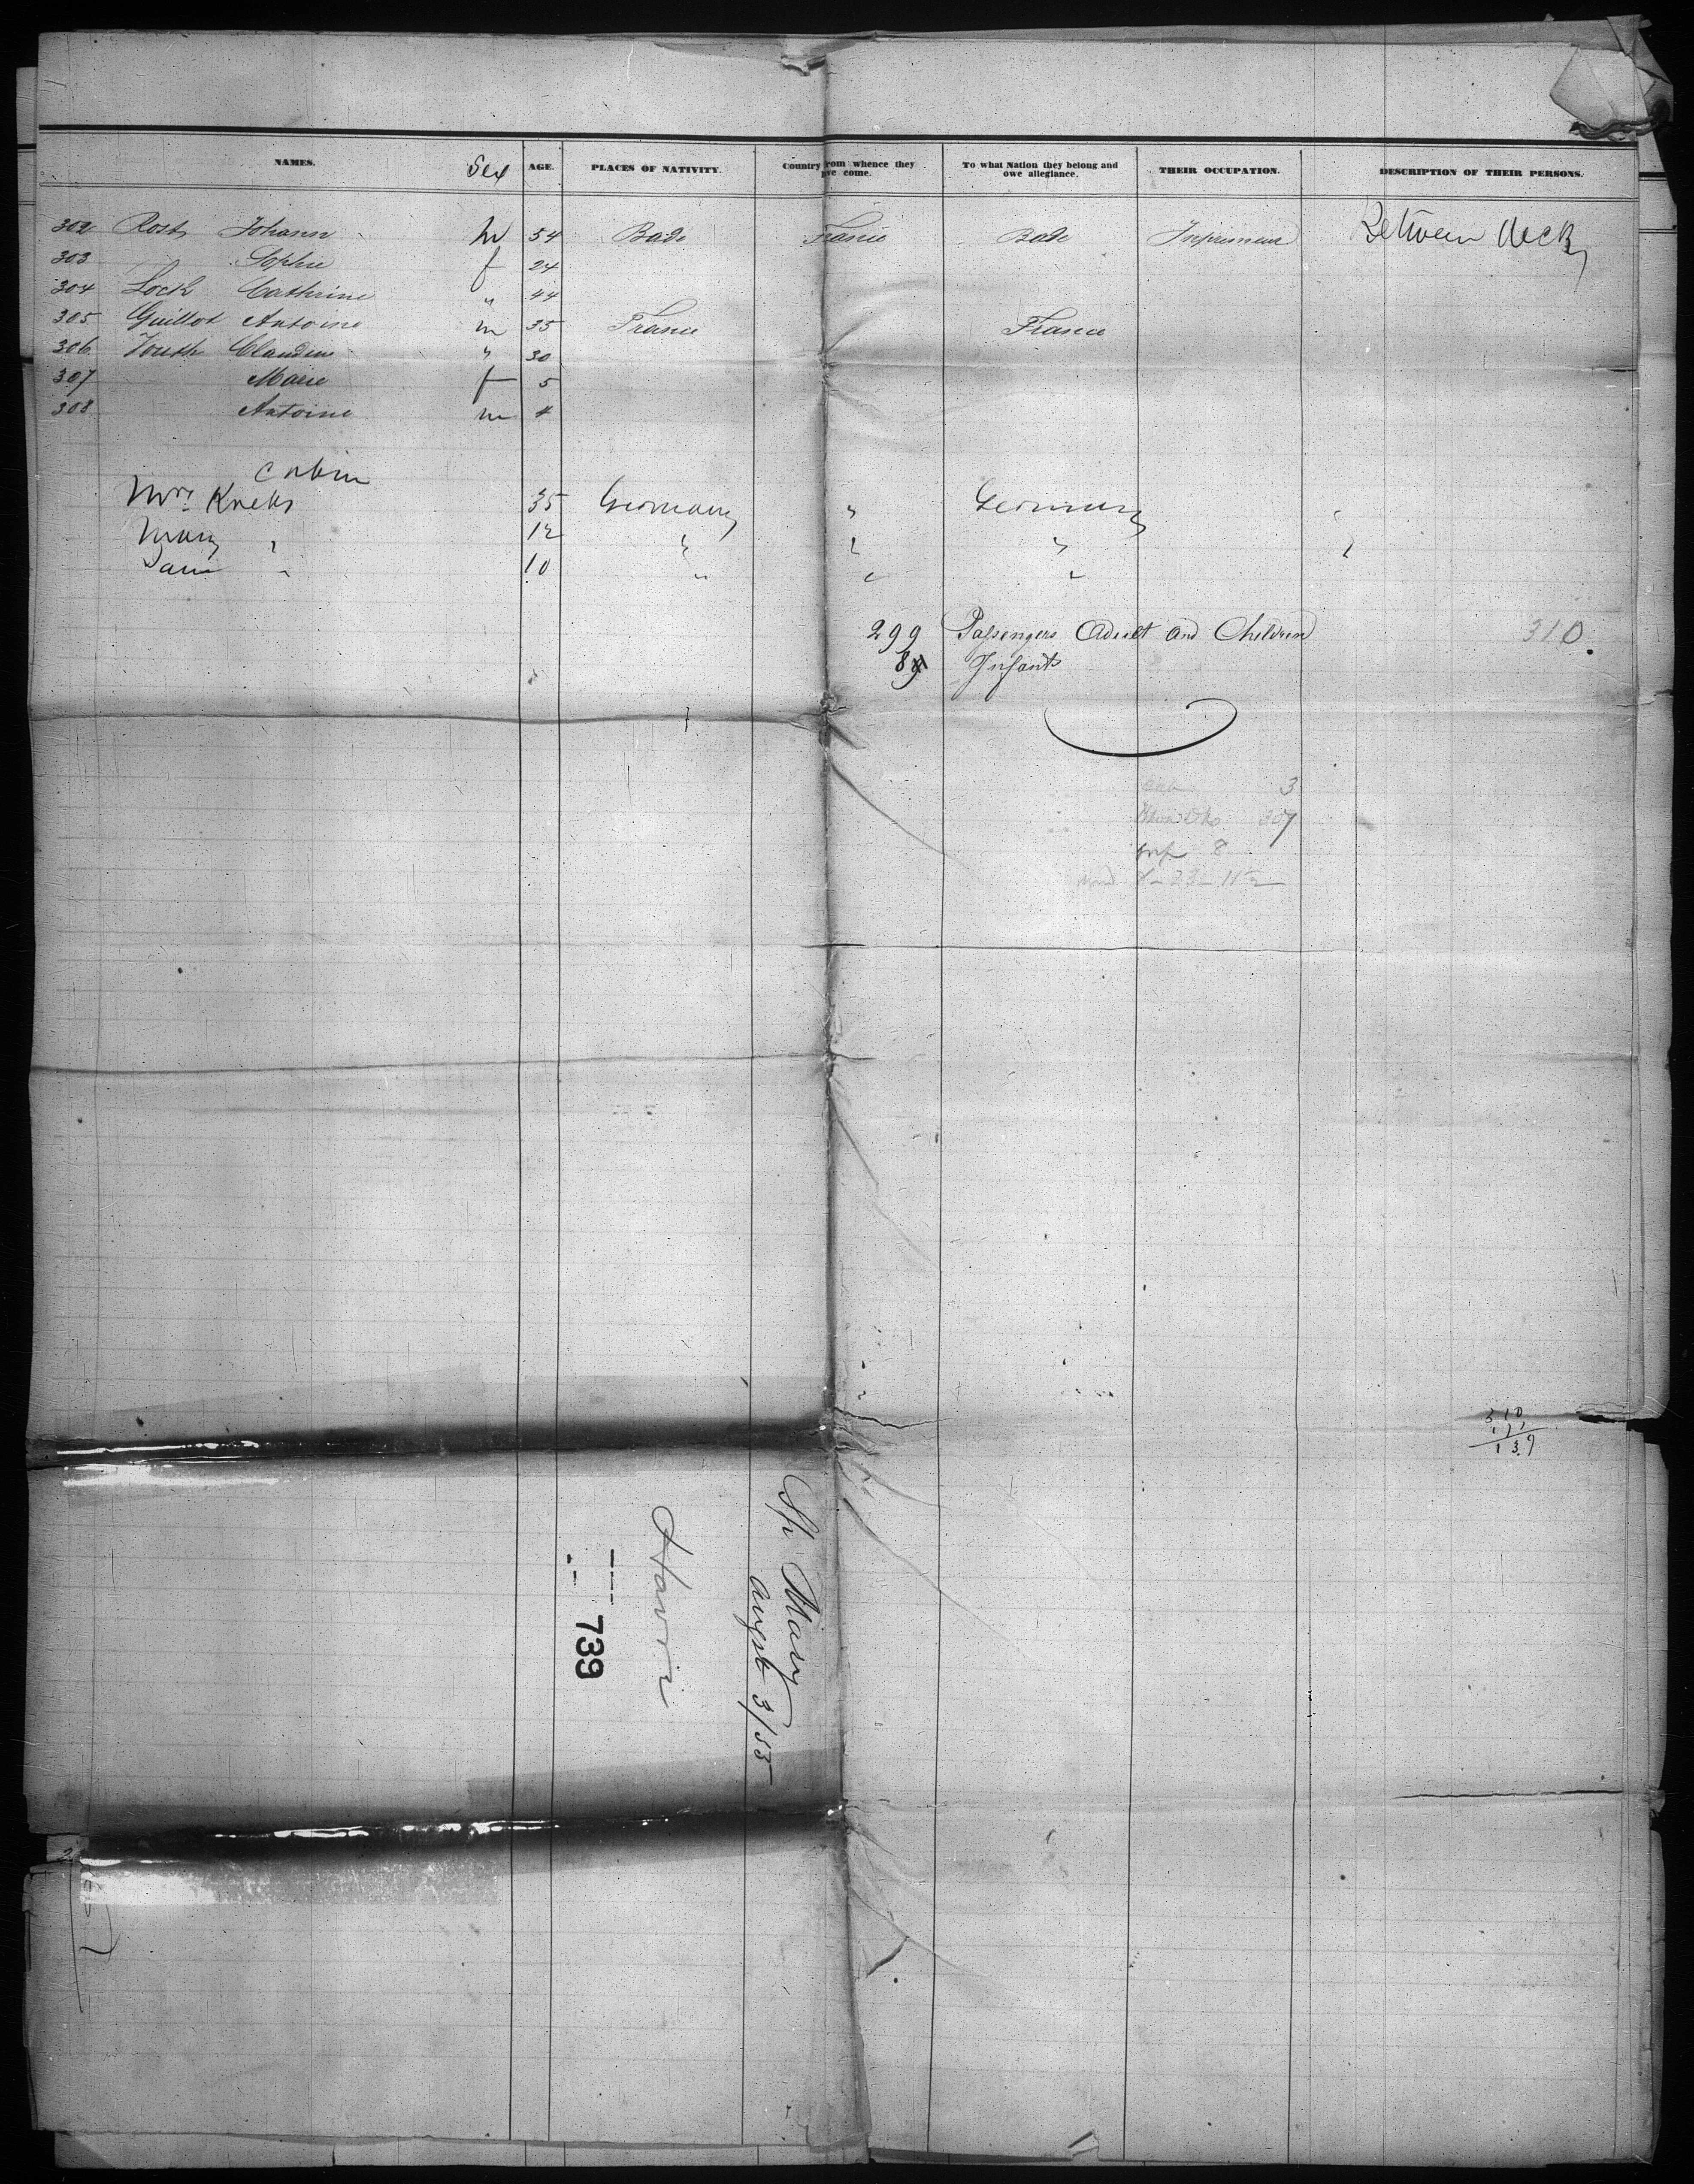 NAMES. Sex AGE. PLACES OF NATIVITY. Country from whence they have come. To what Nation they belong and owe allegiance. THEIR OCCUPATION. DESCRIPTION OF THEIR PERSONS.
302 Rost Johann m 54 Bade France Bade Imprimeur Between Deck
303 Sophie f 24
304 Lock Cathrine " 44
305 Guillot Antoine m 35 France France
306 Claudine " 30
307 Marie f 5
308 Antoine m 4
Cabin
Mrs Krebs 35 Germany " Germany "
Mary " 12 " " " "
" 10 " " "
299 Passengers Adult and Children 310.
8 Infants
3
307
Inf 8
310
171
139
Sh. Mary
Augst 3/53
Havre
739